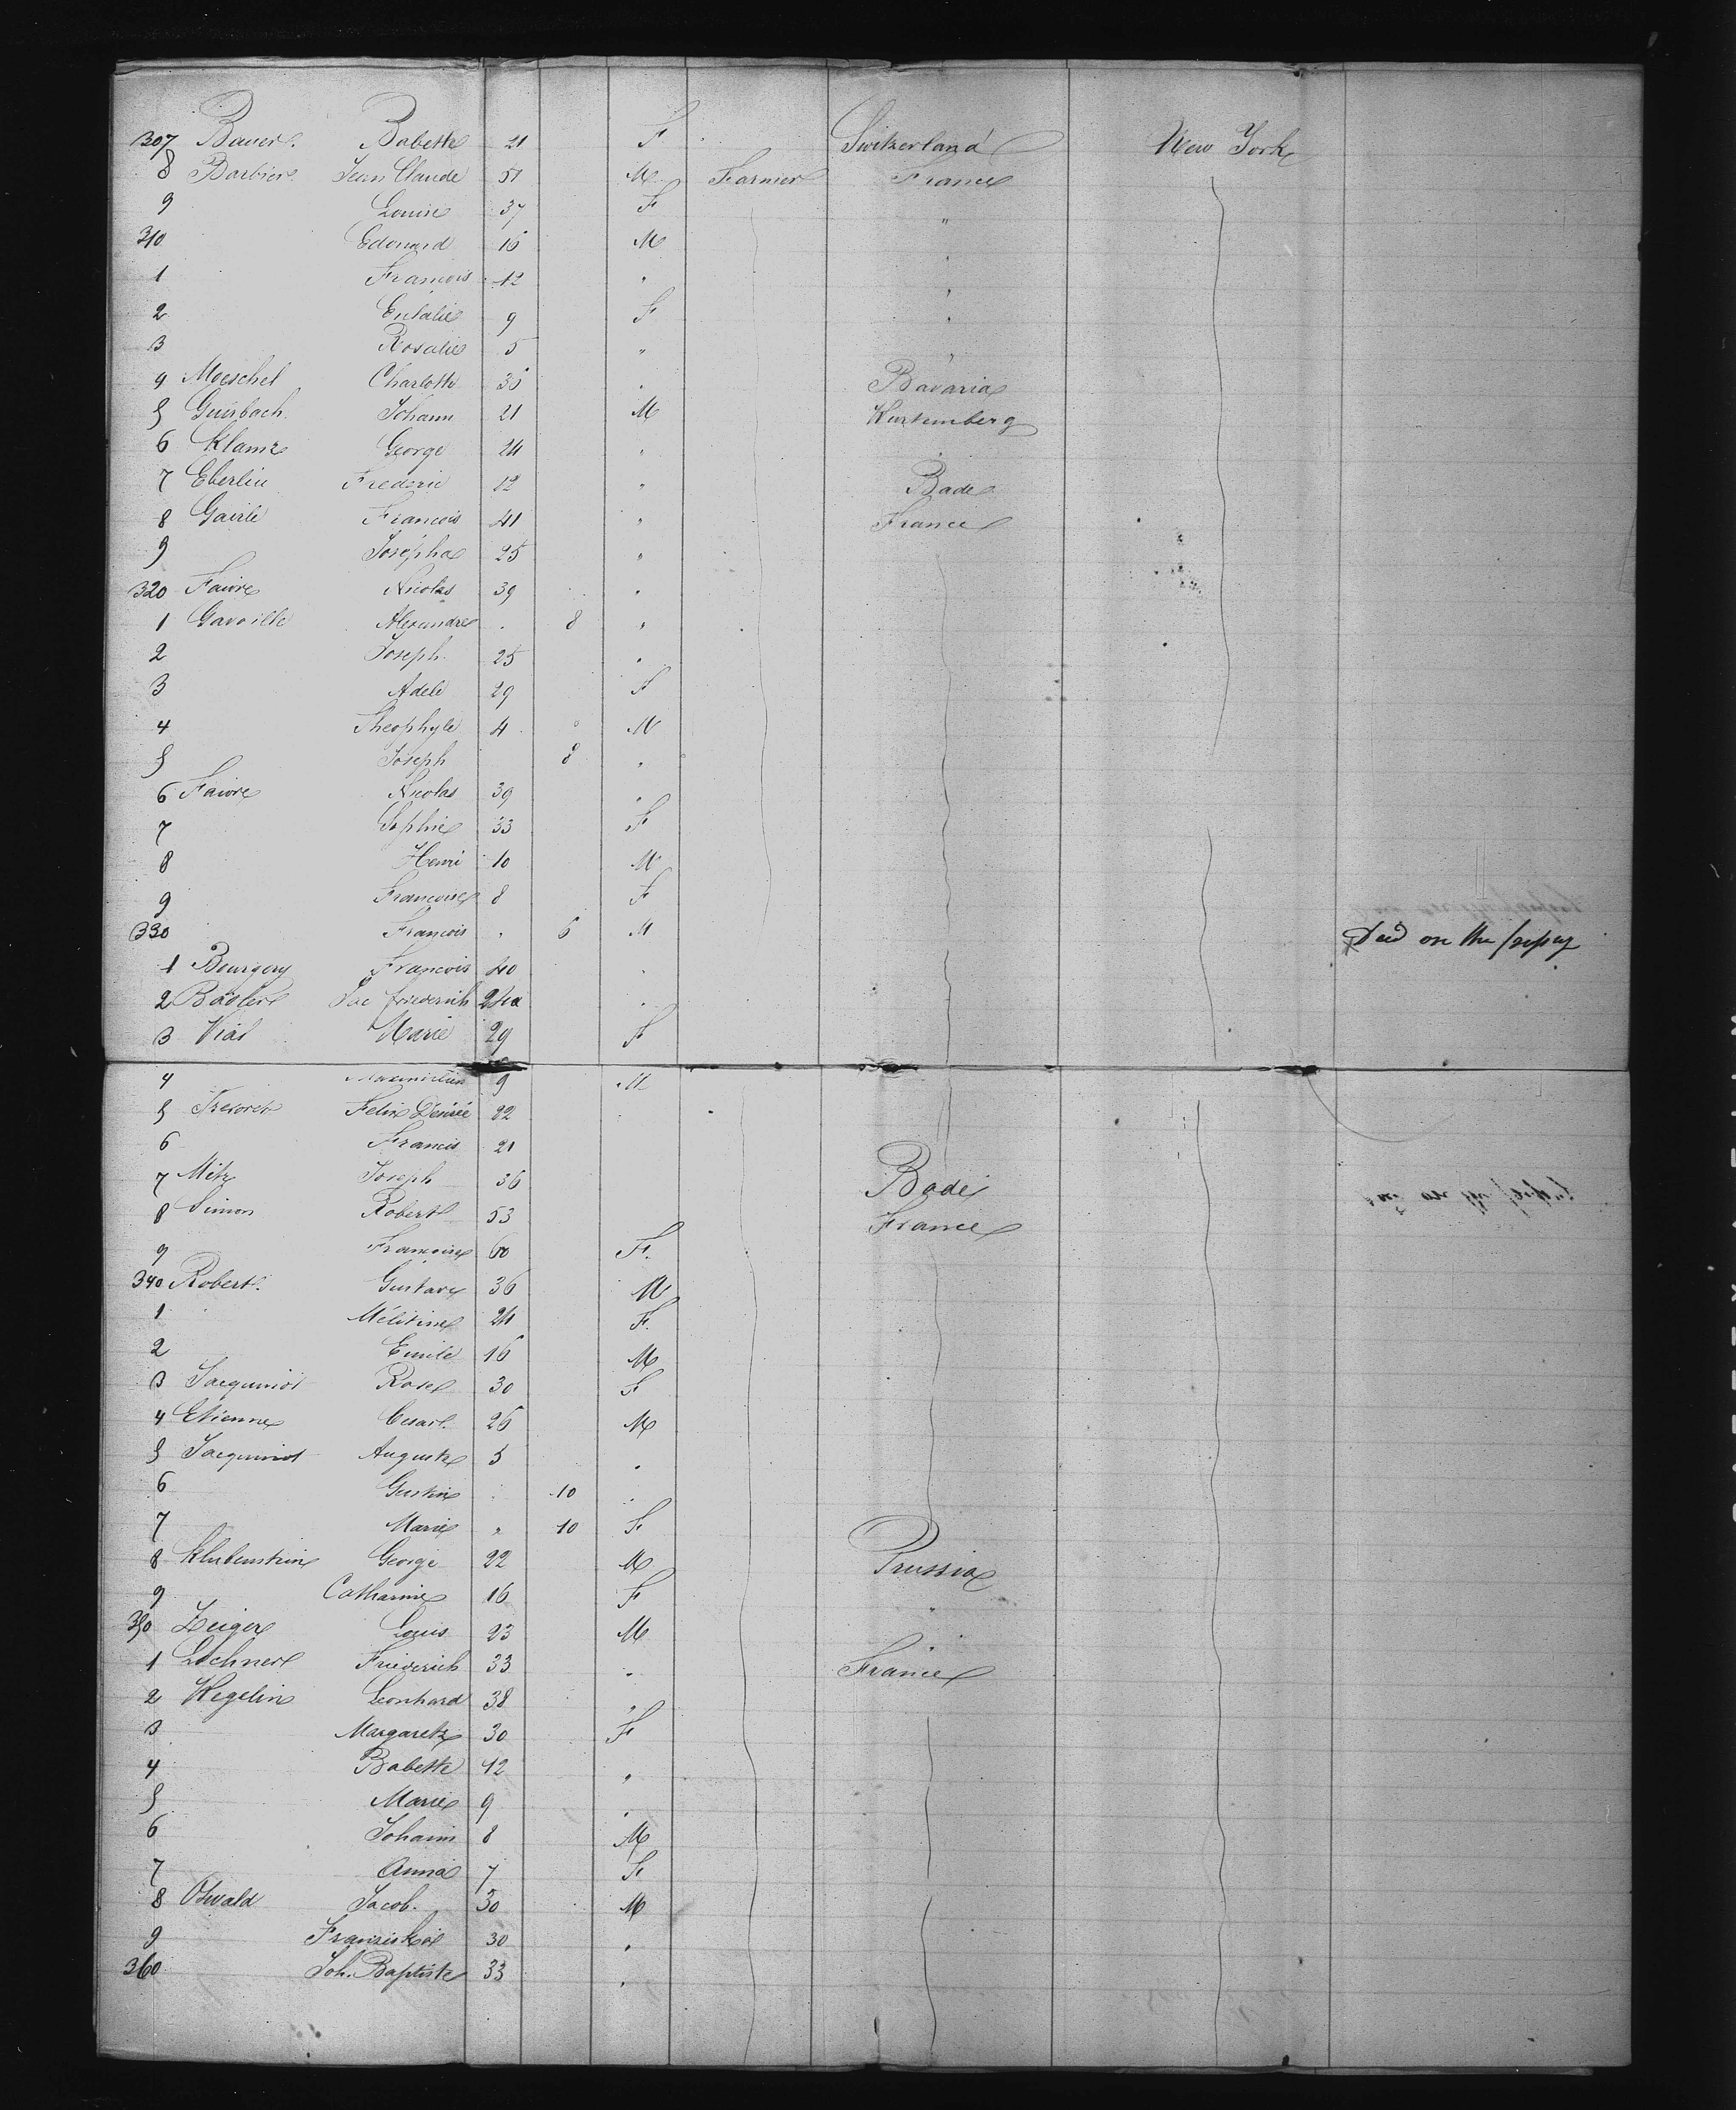 307 Bauer Babette 21 F Switzerland New York
8 Barbier Jean Claude 51 M Farmer France
9 Louise 37 F "
310 Edouard 16 M "
1 Francois 12 " "
2 Eulalie 9 F "
3 Rosalie 5 " "
4 Moeschel Charlotte 36 " Bavaria
5 Guirbach Johann 21 M Wurtemberg
6 Klamz George 24 "
7 Eberlin Frederic 12 " Bade
8 Gairle Francois 41 " France
9 Josepha 25 "
320 Faivre Nicolas 39 "
1 Gavoille Alexandre 8 "
2 Joseph 25 "
3 Adele 29 F
4 Theophyle 4 M
5 Joseph 8 "
6 Faivre Nicolas 39 "
7 Sophie 33 F
8 Henri 10 M
9 Francoise 8 F
330 Francois " 6 M Died on the
1 Bourgery Francois 40 "
2 Basler Jac friederich 24 "
3 Vial Marie 29 F
4 Maximilien 9 M
5 Felix Désirée 22
6 Francis 21
7 Metz Joseph 36 Bade
8 Simon Robert 53 France
9 Francoise 60 F.
340 Robert Gustave 36 M
1 Mélitine 24 F.
2 Emile 16 M
3 Jacquinot Rose 30 F
4 Etienne Cesar 26 M
5 Jacquinot Auguste 5 "
6 Gustine 10 "
7 Marie " 10 F
8 Klubenstein George 22 M Prussia
9 Catharine 16 F "
350 Zeiger Louis 23 M "
1 Lochner Friederich 33 " France
2 Wegelin Leonhard 38 "
3 Margareth 30 F
4 Babette 12 "
5 Marie 9 "
6 Johann 8 M
7 Anna 7 F
8 Oswald Jacob 30 M
9 Franziska 30 "
360 Joh. Baptiste 33 "